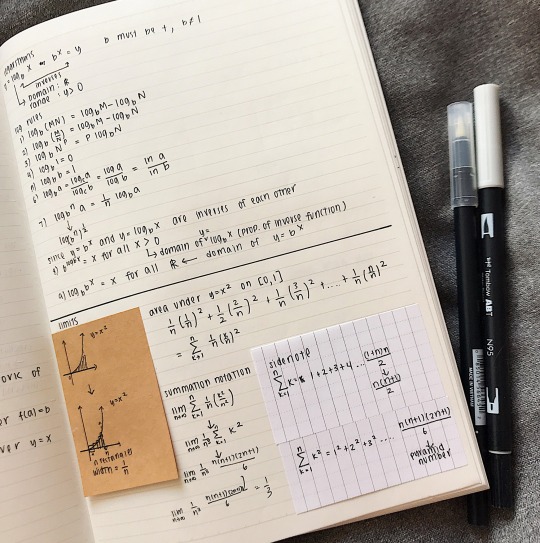 logarithms
y = log_b x ↔ b^x = y b must be +, b≠1
inverses
domain: ℝ
range: y > 0
log rules
1) log_b (MN) = log_b M - log_b N
2) log_b (M/N) = log_b M - log_b N
3) log_b N^p = P log_b N
4) log_b 1 = 0
5) log_b b = 1
6) log_b a = log_c a / log_c b = log a / log b = ln a / ln b
7) log_{b^n} a = 1/n log_b a
since y = b^x and y = log_b x are inverses of each other
8) b^{log_b x} = x for all x > 0
domain of y = log_b x (prop. of inverse function)
9) log_b b^x = x for all ℝ ← domain of y = b^x
limits
y = x²
y = x²
n rectangles
width = 1/n
area under y = x² on [0,1]
1/n (1/n)² + 1/2 (2/n)² + 1/n (3/n)² + .... + 1/n (n/n)²
= Σ_{k=1}^{n} 1/n (k/n)²
summation notation
lim_{n→∞} Σ_{k=1}^{n} 1/n (k²/n²)
lim_{n→∞} 1/n³ Σ_{k=1}^{n} k²
lim_{n→∞} 1/n³ n(n+1)(2n+1)/6
lim_{n→∞} 1/n³ n(n+1)(2n+1)/6 = 1/3
sidenote
Σ_{k=1}^{n} k = 1+2+3+4 ... (1+n)n/2
n(n+1)/2
Σ_{k=1}^{n} k² = 1²+2²+3² .... n(n+1)(2n+1)/6
pyramid
number
work of
or f(a)=b
over y=x
Tombow ABT N95
MADE IN VIETNAM